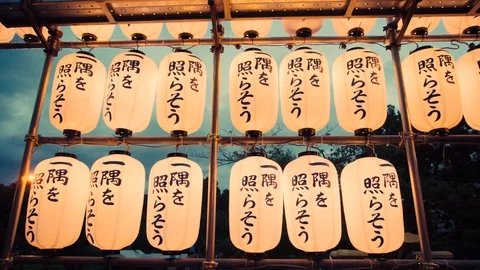 隅を
照らそう
隅を
照らそう
隅を
照らそう
隅を
照らそう
隅を
照らそう
隅を
照らそう
隅を
照らそう
一隅を
照らそう
一隅を
照らそう
一隅を
照らそう
一隅を
照らそう
一隅を
照らそう
一隅を
照らそう